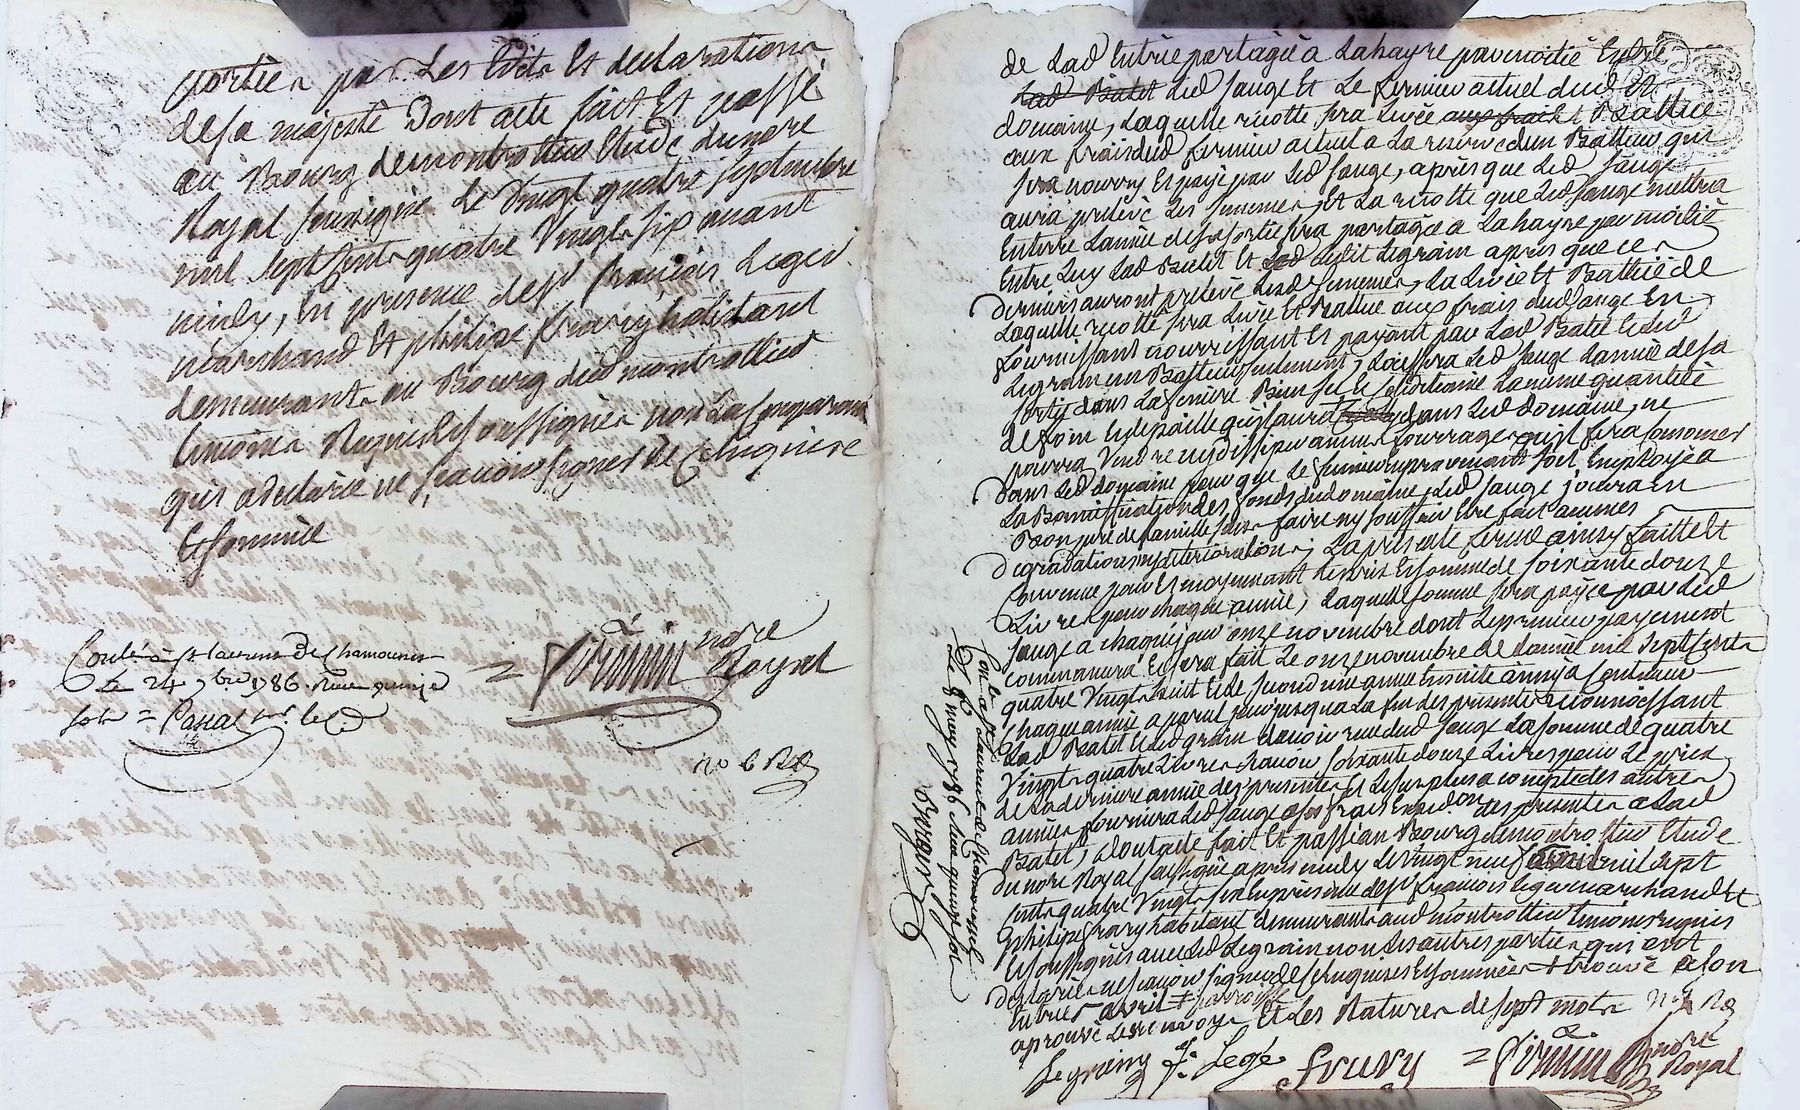 portées par les Edits et declarations
de sa majesté Dont acte fait Et passé
au Bourg de montrottier Etude du nore
Royal soussigné le vingt quatre septembre
mil sept cents quatre vingts six avant
midy, En presence de sr françois Leger
marchand Et philipe fruvy habitant
demeurants au Bourg dud montrottier
temoins Requis Et soussignés non la comparante
qui a declarée ne scavoir signer de ce Enquise
Et sommée
Conlé à st laurens De Chamousset
Le 24 7bre 1786. Reçu quinze
sols = Pascal
nore
Royal
de lad Entrée partagée a La hayre par moitié Entre
Lad Batet Led sauge Et Le fermier actuel dud
domaine, Laquelle recolte sera Livée aux frais Et Battue
aux frais dud fermier actuel a La reserve d'un Batteur qui
sera nourry Et payé par Led sauge, après que Led sauge
aura prelevé Les semences, Et La recolte que Led sauge mettra
En terre L'année de sa sortie sera partagée a La hayre par moitié
Entre Luy Lad Batet Et Led Petit Legrain après que ces
derniers auront prelevé Lesd semences, La Livée Et Battue de
Laquelle recolte sera Livée Et Battue aux frais dud sauge En
fournissant nourrissant Et payant par Lad Batet Et Led
Legrain un Batteur seulement, Laissera Led sauge L'année de sa
sortie dans La feniere Bien sec Et conditionné La meme quantité
de foin Et de paille qu'il aura dans Led domaine, ne
pourra vendre ny dissiper aucuns fourrages qu'il fera consommer
dans Led domaine pour que Le fumier En provenant soit Employé a
La Bonnification des fonds du domaine, Led sauge jouira En
Bon pere de famille sans faire ny souffrir Etre fait aucunes
degradations ny deteriorations, La presente ferme ainsy faitte Et
Convenue pour Et moyennant Le prix Et somme de soixante douze
Livres pour chaque année, Laquelle somme sera payée par Led
sauge a chaque jour onze novembre dont Le premier payement
commencera Et sera fait Le onze novembre de L'année mil sept cents
quatre vingts huit Et Le second une année Ensuite ainsy a continuer
chaque année a pareil jour jusqu'a La fin des presentes reconnoissant
Lad Batet Et Led grain d'avoir reçu dud sauge La somme de quatre
vingts quatre Livres scavoir soixante douze Livres pour Le prix
de La derniere année des presentes Et Le surplus a compte des autres
années fournira Led sauge a ses frais Expedon des presentes a Lad
Batet, dont acte fait Et passé au Bourg de montrottier Etude
du nore Royal soussigné après midy Le vingt neuf mil sept
cents quatre vingts six En presence de sr françois Leger marchand Et
philipe fruvy habitant demeurants aud montrottier temoins requis
Et soussignés avec Led Legrain non Les autres parties qui ont
declarées ne scavoir signer de ce Enquises Et sommées
avril
aprouvé Le renvoy Et Les Ratures de sept mots
Legrain
f. Legé
fruvy
nore
Royal
Conlé a st Laurent de Chamousset
Le 8 may 1786 Reçu quinze sols